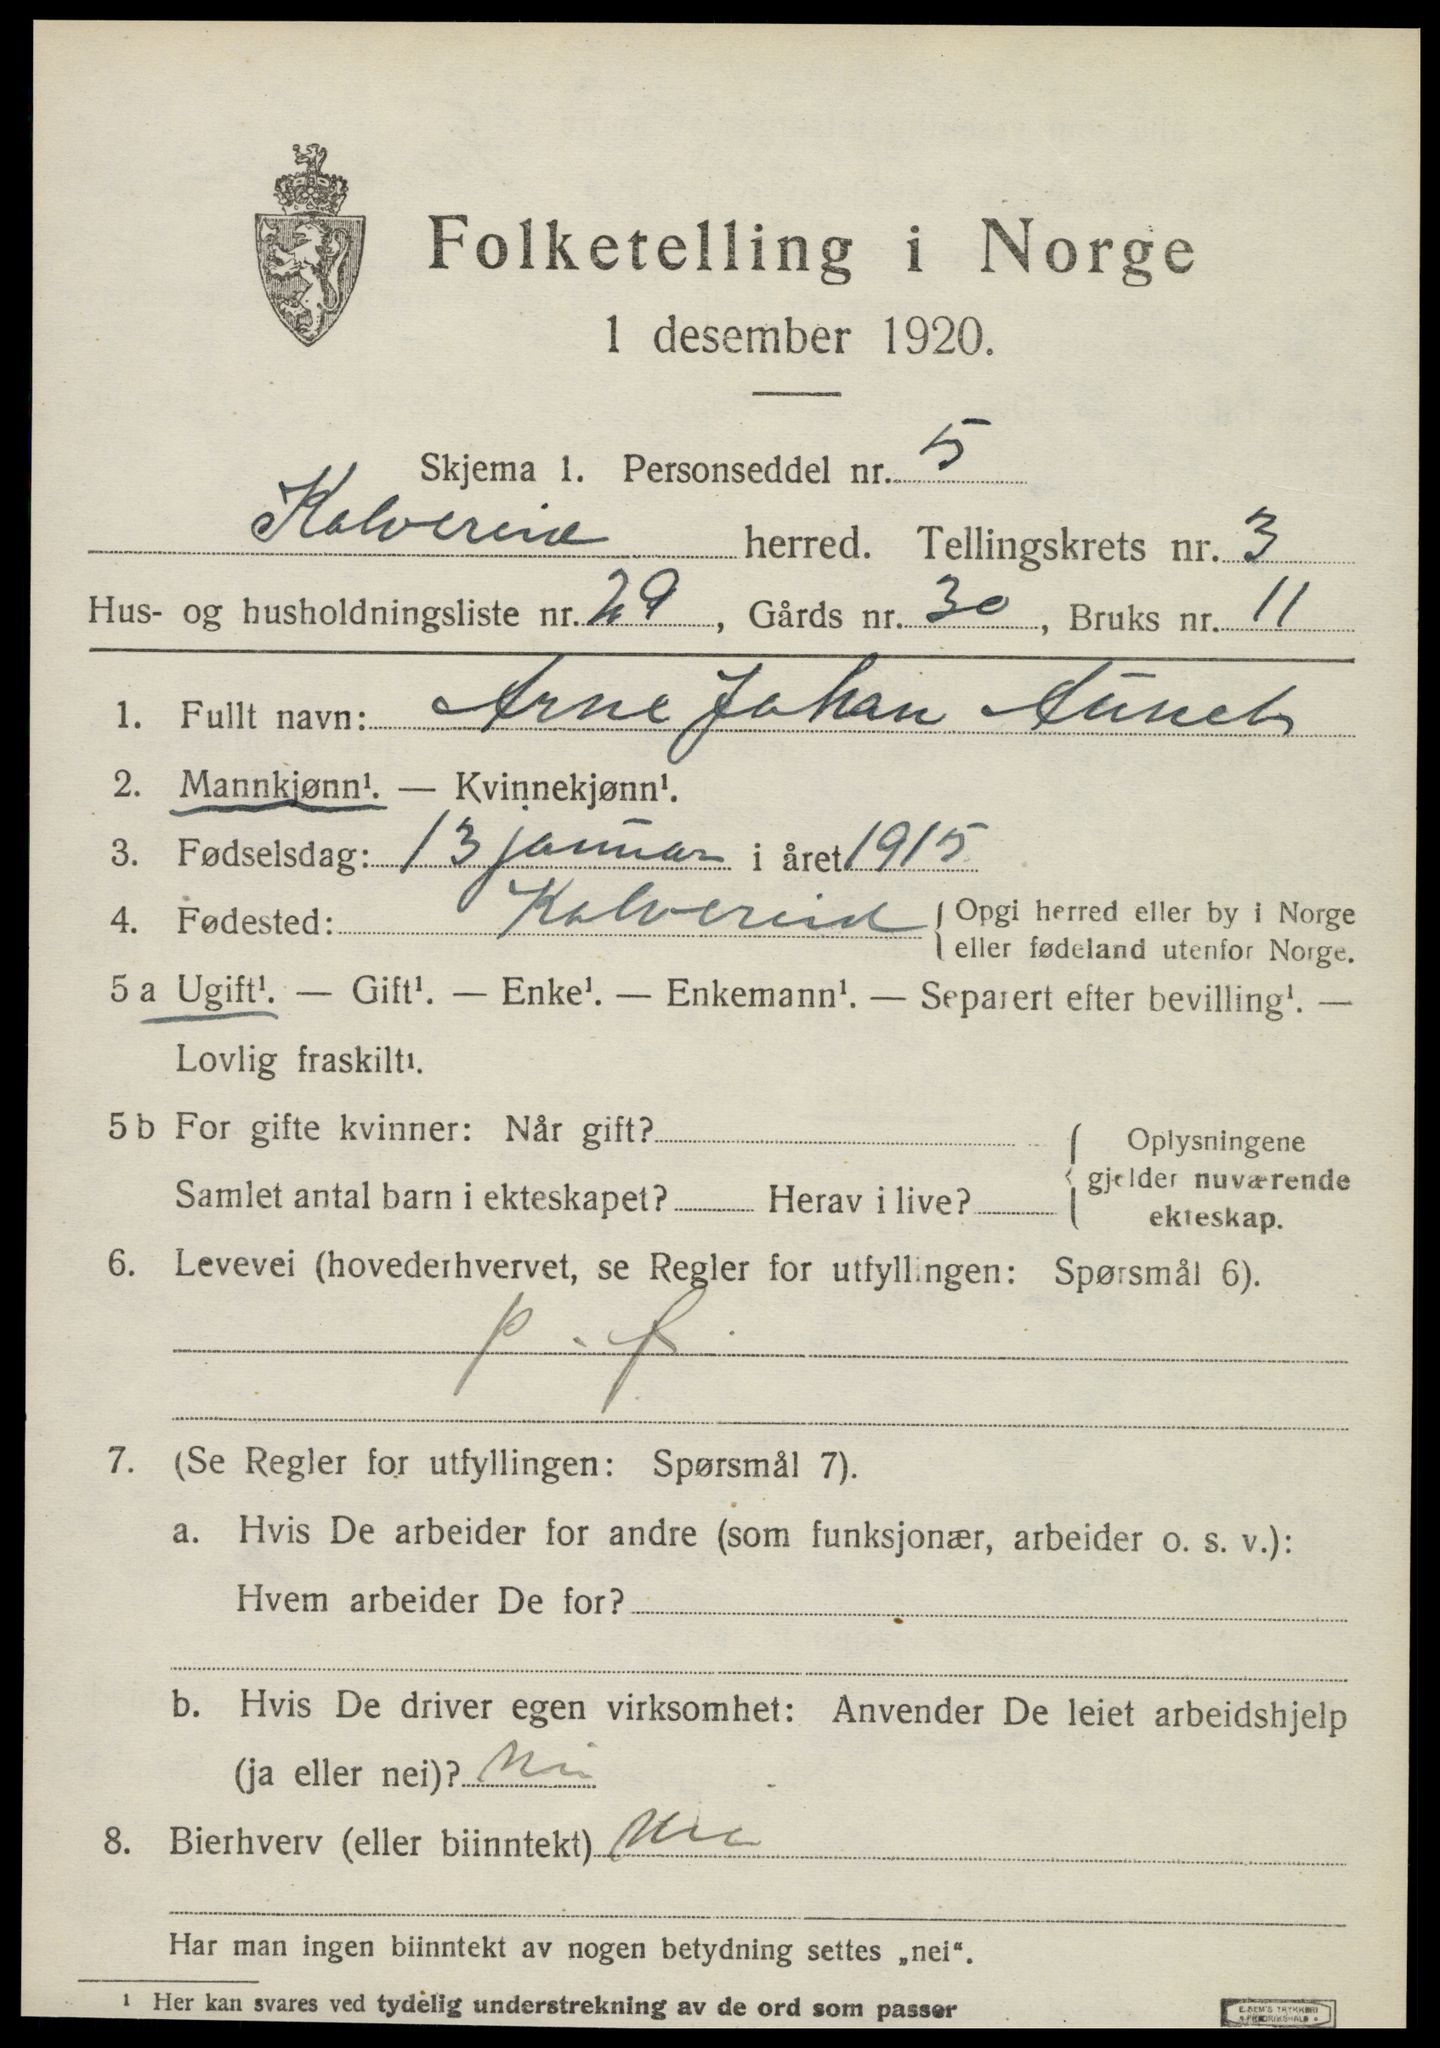 Folketelling i Norge
1 desember 1920.
Skjema 1. Personseddel nr. 5
Kolvereid herred. Tellingskrets nr. 3
Hus- og husholdningsliste nr. 29, Gårds nr. 30, Bruks nr. 11
1. Fullt navn: Arne Johan Aunet
2. Mannkjønn¹. — Kvinnekjønn¹.
3. Fødselsdag: 13 januar i året 1915
4. Fødested: Kolvereid { Opgi herred eller by i Norge
eller fødeland utenfor Norge.
5 a Ugift¹. — Gift¹. — Enke¹. — Enkemann¹. — Separert efter bevilling¹. —
Lovlig fraskilt¹.
5 b For gifte kvinner: Når gift?
Samlet antal barn i ekteskapet? Herav i live?
{ Oplysningene
gjelder nuværende
ekteskap.
6. Levevei (hovederhvervet, se Regler for utfyllingen: Spørsmål 6).
7. (Se Regler for utfyllingen: Spørsmål 7).
a. Hvis De arbeider for andre (som funksjonær, arbeider o. s. v.):
Hvem arbeider De for?
b. Hvis De driver egen virksomhet: Anvender De leiet arbeidshjelp
(ja eller nei)? Nei
8. Bierhverv (eller biinntekt) Nei
Har man ingen biinntekt av nogen betydning settes „nei“.
¹ Her kan svares ved tydelig understrekning av de ord som passer
E. SEM'S TRYKKERI
FREDRIKSHALD